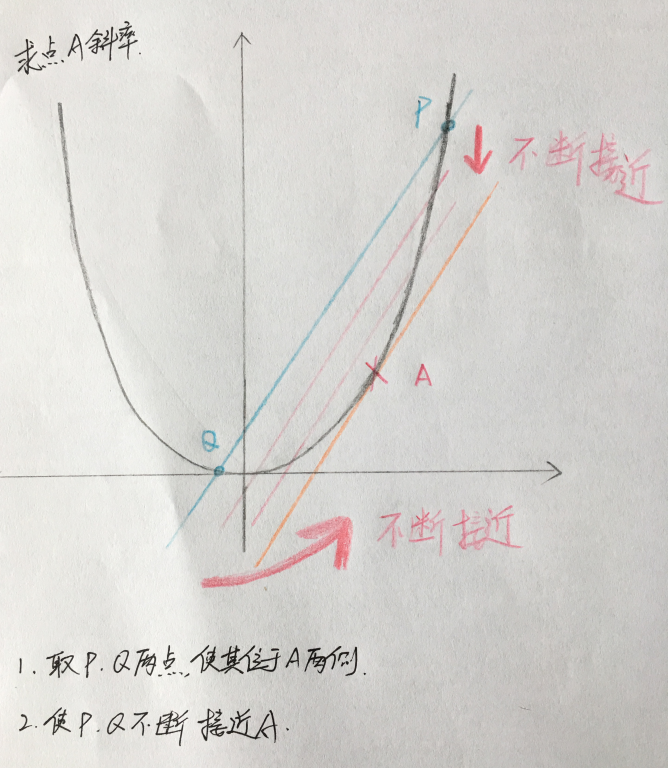 求点A斜率.
P
不断接近
A
Q
不断接近
1. 取P.Q两点,使其位于A两侧.
2. 使P.Q不断接近A.